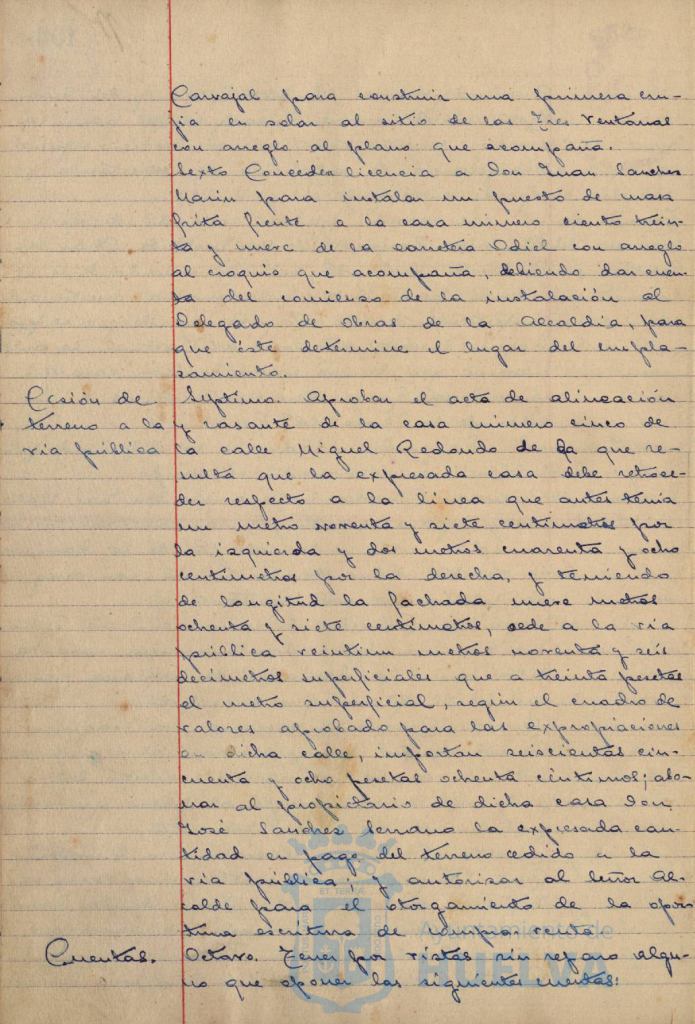 Carvajal para construir una primera cru-
jia en solar al sitio de las Tres Ventanas
con arreglo al plano que acompaña.
Sexto Conceder licencia a Don Juan Sanchez
Marin para instalar un puesto de masa
frita frente a la casa número ciento trein-
ta y nueve de la carretera Odiel con arreglo
al croquis que acompaña, debiendo dar cuen-
ta del comienzo de la instalación al
Delegado de Obras de la Alcaldia, para
que éste determine el lugar del empla-
zamiento.
Cesión de
terreno a la
via pública
Septimo. Aprobar el acta de alineación
y rasante de la casa número cinco de
la calle Miguel Redondo de la que re-
sulta que la expresada casa debe retroce-
der respecto a la linea que antes tenia
un metro noventa y siete centimetros por
la izquierda y dos metros cuarenta y ocho
centimetros por la derecha, y teniendo
de longitud la fachada nueve metros
ochenta y siete centimetros, cede a la via
pública veintiun metros noventa y seis
decimetros superficiales que a treinta pesetas
el metro superficial, según el cuadro de
valores aprobado para las expropiaciones
en dicha calle, importan seiscientas cin-
cuenta y ocho pesetas ochenta céntimos; abo-
nar al propietario de dicha casa Don
José Sanchez Serrano la expresada can-
tidad en pago del terreno cedido a la
via pública; y autorizar al Señor Al-
calde para el otorgamiento de la opor-
tuna escritura de compra venta
Cuentas.
Octavo. Tener por vistas sin reparo algu-
no que oponer las siguientes cuentas:
Ayuntamiento de
HUELVA